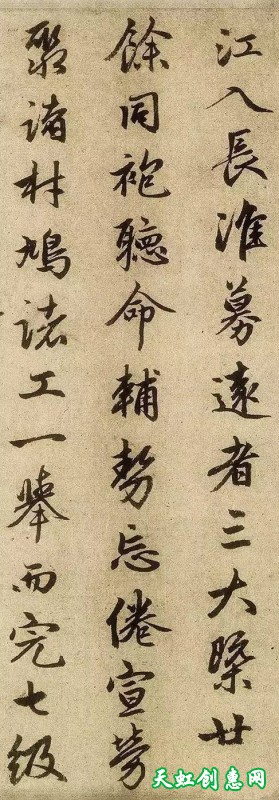 江入長淮募遠者三大槩廿
餘同袍聽命輔勢忘倦宣勞
聚諸材鳩諸工一舉而完七级
天虹创惠网